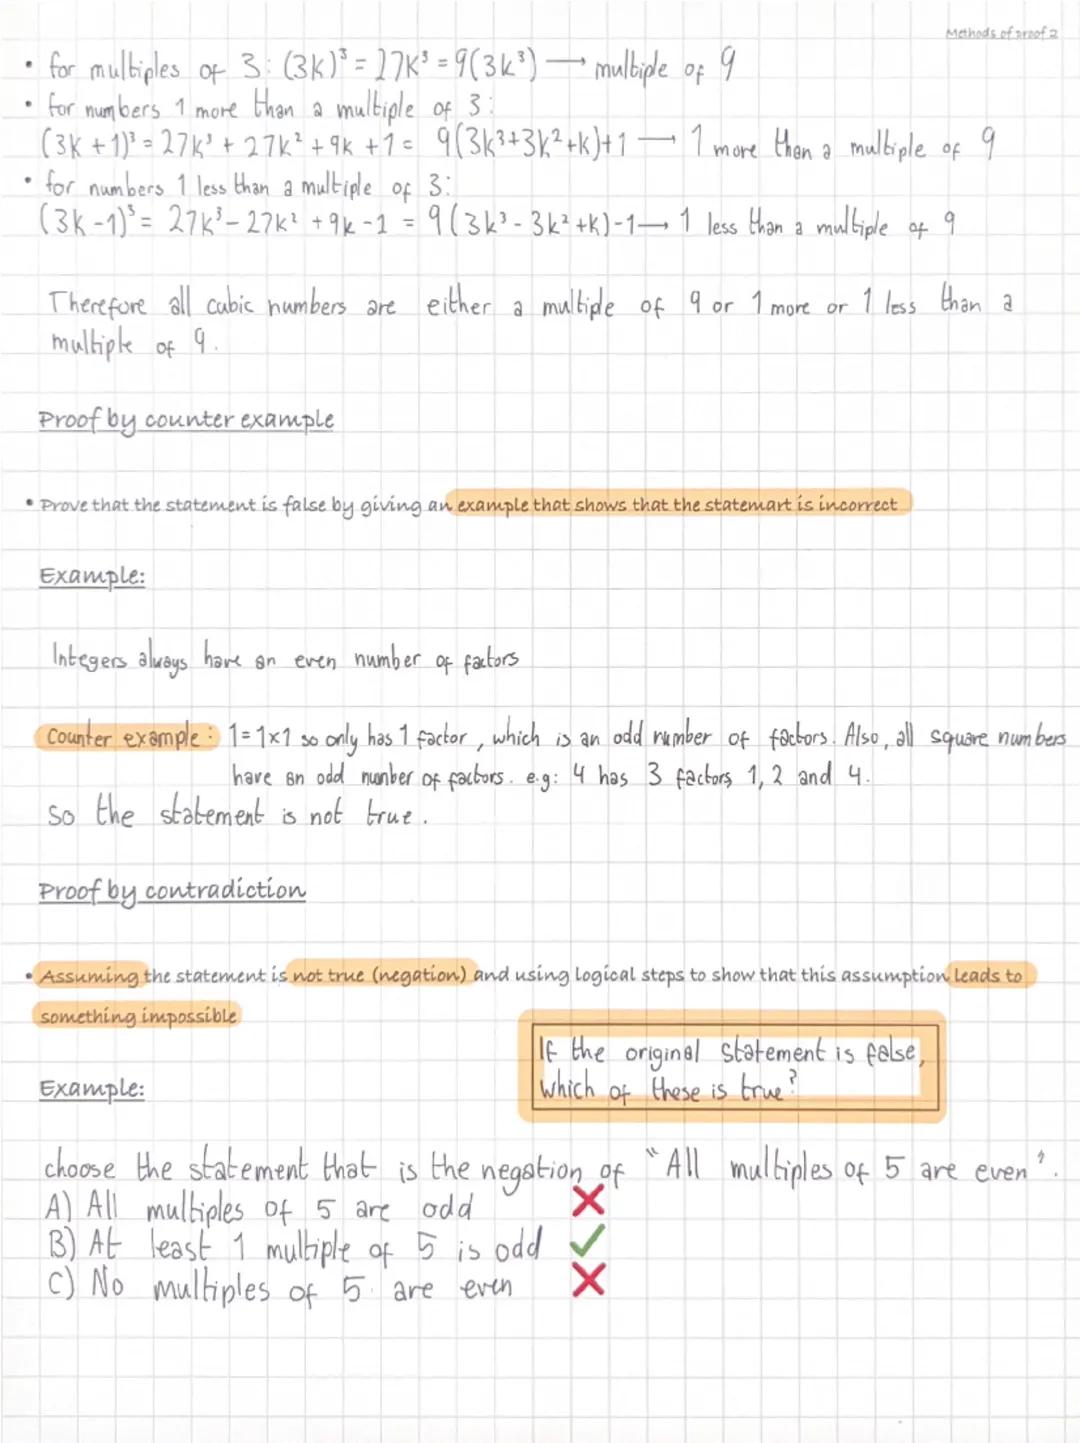 Methods of proof 2
• for multiples of 3: (3k)³ = 27k³ = 9(3k³) → multiple of 9
• for numbers 1 more than a multiple of 3:
(3k + 1)³ = 27k³ + 27k² + 9k + 1 = 9(3k³+3k²+k)+1 → 1 more than a multiple of 9
• for numbers 1 less than a multiple of 3:
(3k - 1)³ = 27k³ - 27k² + 9k - 1 = 9(3k³ - 3k² + k) - 1 → 1 less than a multiple of 9
Therefore all cubic numbers are either a multiple of 9 or 1 more or 1 less than a
multiple of 9.
Proof by counter example
• Prove that the statement is false by giving an example that shows that the statemart is incorrect
Example:
Integers always have an even number of factors
Counter example: 1=1×1 so only has 1 factor, which is an odd number of factors. Also, all square numbers
have an odd number of factors. e.g: 4 has 3 factors, 1, 2 and 4.
So the statement is not true.
Proof by contradiction
• Assuming the statement is not true (negation) and using logical steps to show that this assumption leads to
something impossible
If the original statement is false,
which of these is true?
Example:
choose the statement that is the negation of "All multiples of 5 are even".
A) All multiples of 5 are odd
B) At least 1 multiple of 5 is odd
C) No multiples of 5 are even